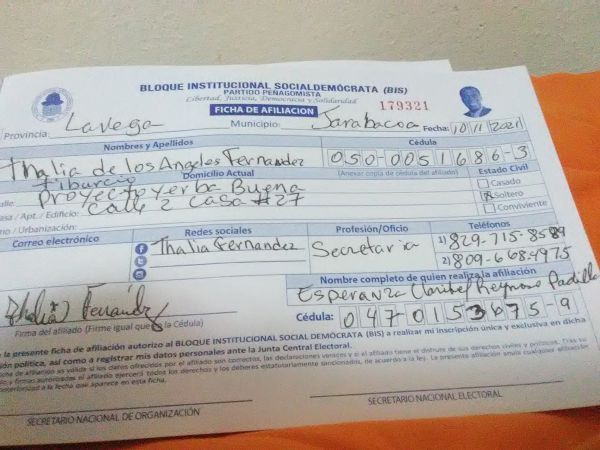 BLOQUE INSTITUCIONAL SOCIALDEMÓCRATA (BIS)
PARTIDO PEÑAGOMISTA
Libertad, Justicia, Democracia y Solidaridad
FICHA DE AFILIACION
179321
Provincia: La vega Municipio: Jarabacoa Fecha: 10/11/2021
Nombres y Apellidos Cédula
Thalia de los Angeles Fernandez 050-0051686-3
Tiburcio
Domicilio Actual (Anexar copia de cédula del afiliado) Estado Civil
Proyecto yerba Buena Casado
Calle 2 casa #27 Soltero
asa / Apt. / Edificio: Conviviente
io / Urbanización:
Correo electrónico Redes sociales Profesión/Oficio Teléfonos
Thalia Fernandez Secretaria 1) 829-715-8589
2) 809-668-4975
Nombre completo de quien realiza la afiliación
Esperanza Claribel Reynoso Padilla
Thalia Fernández
Firma del afiliado (Firme igual que la Cédula) Cédula: 0470153675-9
la presente ficha de afiliación autorizo al BLOQUE INSTITUCIONAL SOCIAL DEMÓCRATA (BIS) a realizar mi inscripción única y exclusiva en dicha
ión política, así como a registrar mis datos personales ante la Junta Central Electoral.
SECRETARIO NACIONAL DE ORGANIZACIÓN SECRETARIO NACIONAL ELECTORAL